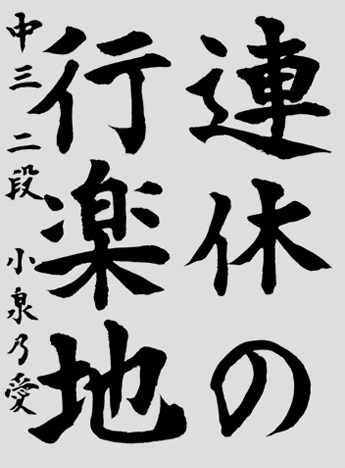 連休の
行楽地
中三 二段 小泉乃愛